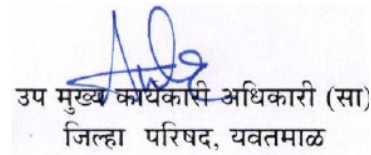 उप मुख्य कार्यकारी अधिकारी (सा)
जिल्हा परिषद, यवतमाळ